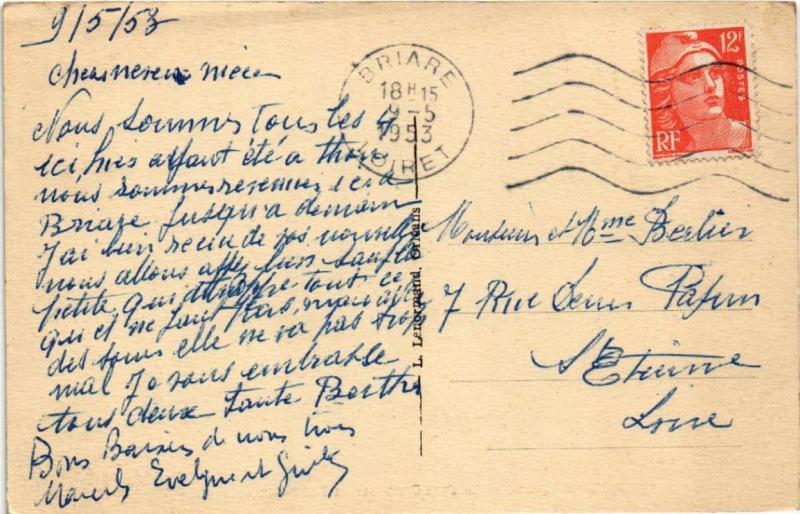 9/5/53
Nous sommes tous les 4
ici, hier ayant été a
nous sommes revenus ici a
Briare Jusqu'a demain
J'ai bien recu de vos nouvelles
nous allons assez bien sauf la
petite, qui tout ce
qui et ne faut pas, mais avec
des soins elle ne va pas trop
mal Je vous embrasse
tous deux Tante Berthe
Bons Baisers de nous trois
Marcel Evelyne et
BRIARE
18H15
9-5
1953
LOIRET
12F
POSTES
RF
L. Lenormand, Orléans
Monsieur et Mme Berlier
7 Rue Denis Papin
St Etienne
Loire